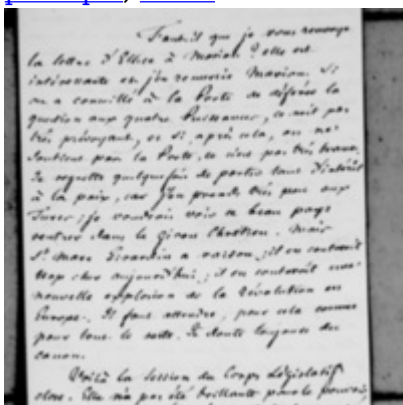 Faut-il que je vous renvoye
la lettre d'Ellice à Marion ? elle est
intéressante et j'en remercie Marion. Si
on a conseillé à la Porte de déférer la
question aux quatre Puissances, ce n'est pas
très prévoyant, et si après cela, on ne
soutient pas la Porte, ce n'est pas très brave.
Je regrette quelquefois de porter tant d'intérêt
à la paix, car j'en prends très peu aux
Turcs ; je voudrais voir ce beau pays
rentrer dans le giron Chrétien. Mais
St Marc Girardin a raison ; il en couterait
trop cher aujourd'hui ; il en couterait une
nouvelle explosion de la Révolution en
Europe. Il faut attendre, pour cela comme
pour tout le reste. Je doute toujours du
canon.
Voilà la session du Corps législatif
close. Elle n'a pas été brillante pour le pouvoir